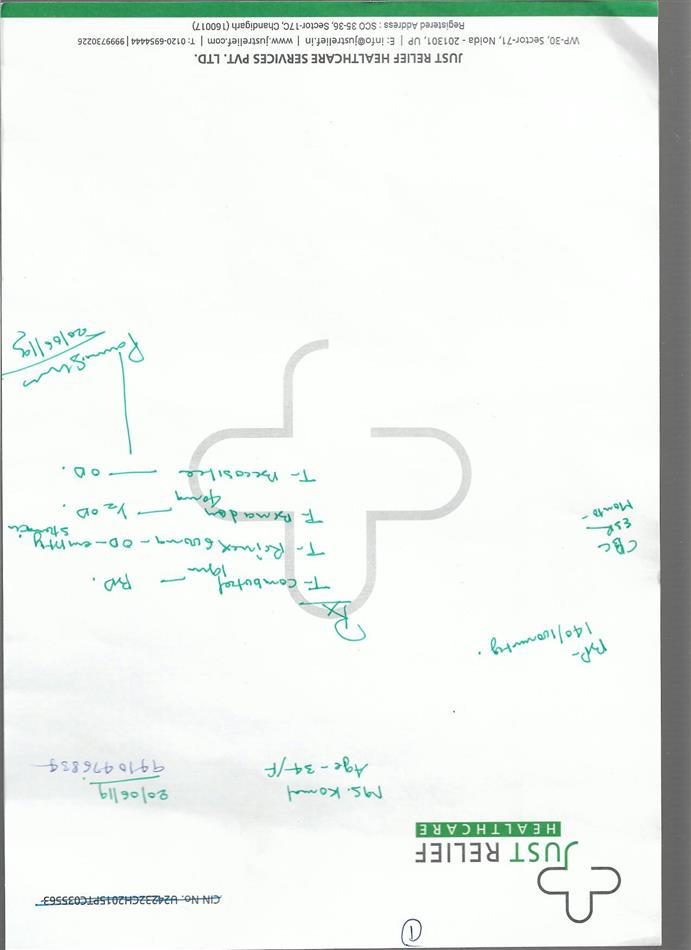 1
CIN No. U24232CH2015PTC035563
JUST RELIEF
HEALTHCARE
Ms. Komal
Age - 34/F
20/06/19
9910976834
BP-
140/100mmHg.
Rx
T- Combutol 1gm — BD.
T- R-cinex 600mg - OD - empty stomach
40mg — ½ OD.
— OD.
CBC
ESR
20/06/19
JUST RELIEF HEALTHCARE SERVICES PVT. LTD.
WP-30, Sector-71, Noida - 201301, UP | E: info@justrelief.in | www.justrelief.com | T: 0120-6954444 | 9999730226
Registered Address : SCO 35-36, Sector-17C, Chandigarh (160017)